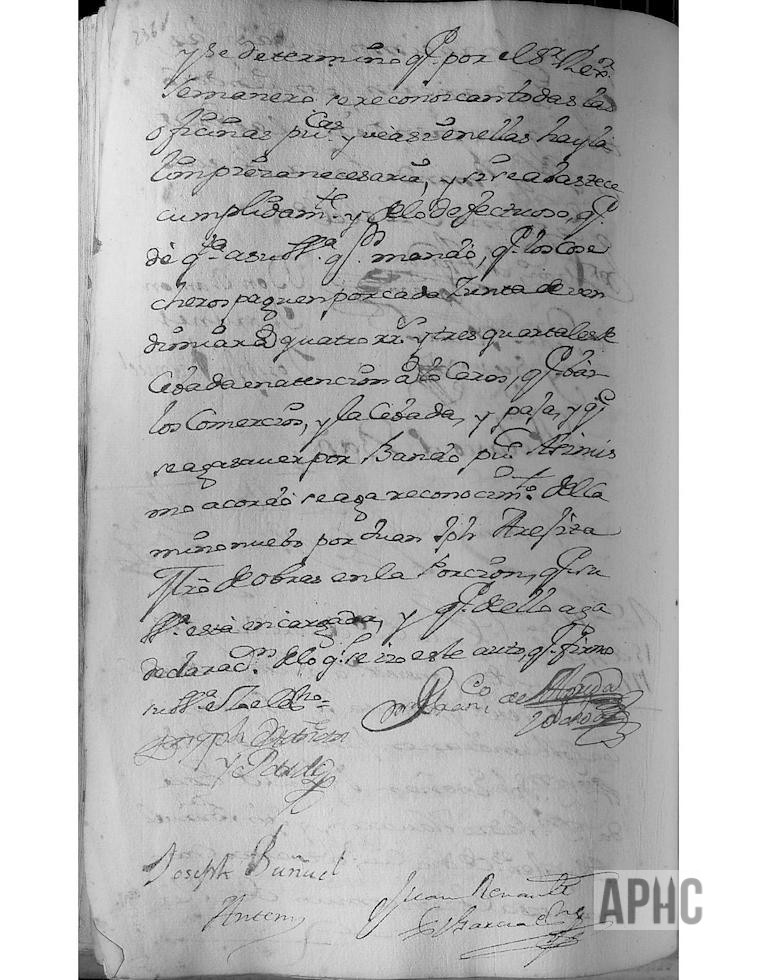 236v
y se determino q.e por el S.r Rex.r
Semanero se reconozcan todas las
oficinas pu.cas y vea si en ellas hay la
limpieza necesaria, y si se abastece
cumplidam.te y de lo defectuoso, q.e
dè q.ta a su ss.a q.n mandó, q.e los Cose
cheros paguen por cada Junta de ven
dimiar quatro rr.s y tres quartales de
Cebada en atencion a lo Caros, q.e bàn
los Comercios, y la Cebada, y paja, y q.e
se aga saver por Bando pu.co Asimis
mo acordó se aga reconocim.to del la
mino nuebo por Juan Jph Arefita
Mro de obras en la Porcion, q.e su
ss.a està encargada, y q.e de ello aga
declarac.n de lo q.e se izo este auto, q.e firmo
su ss.a
Fran.co de Florida
Joseph
y Pardo
Joseph Buñuel
Antemi
Juan
Garcia
APHC